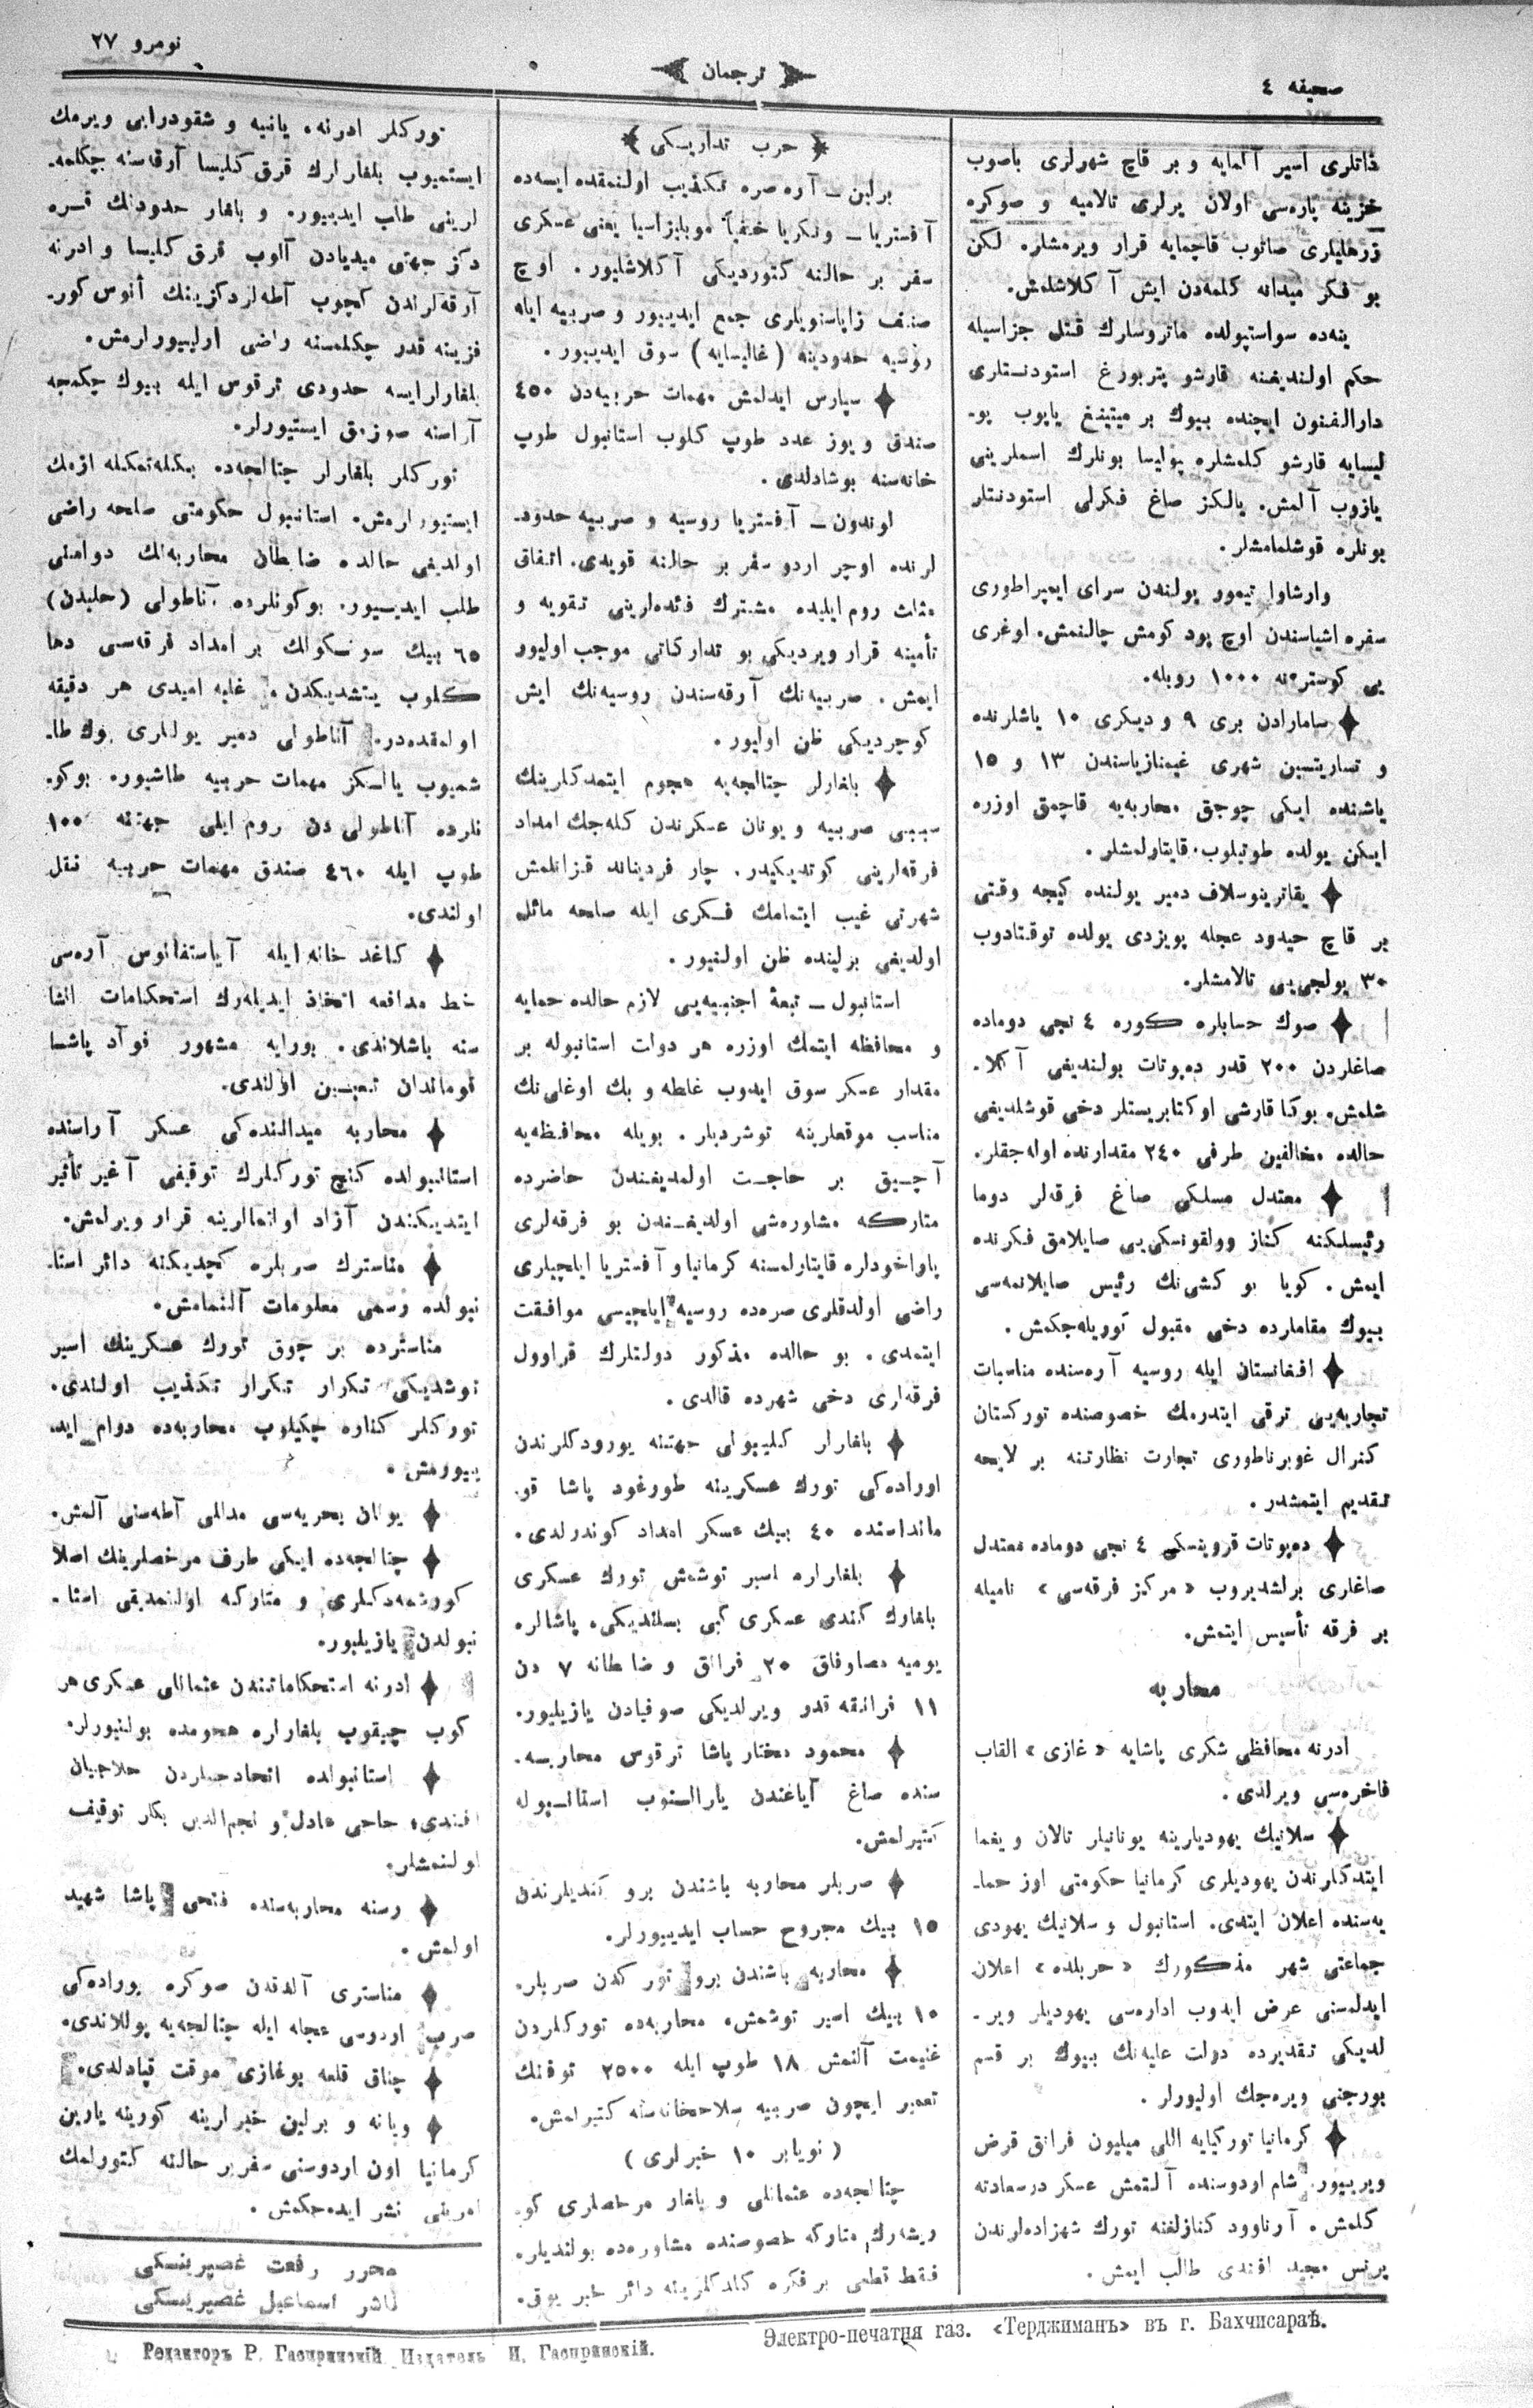 صحیفه ٤
ترجمان
نومرو ٢٧
ذاتلری اسیر آلمایه و بر قاچ شهرلری باصوب
خزینه پاره‌سی اولان یرلری تالامیه و صوكره
قاچمایه قرار ویرمشلر. لكن
بو فكر میدانه كلمه‌دن ایش آكلاشلمش.
ینه‌ده سواستپولده ماتروسلرك قتل جزاسیله
حكم اولندیغنه قارشو پتربورغ استودنتلری
دارالفنون ایچنده بیوك بر میتینغ یاپوب پو-
لیسایه قارشو كلمشلر. پولیسا بونلرك اسملرینی
یازوب آلمش. یالكز صاغ فكرلی استودنتلر
بونلره قوشلمامشلر.
وارشاوا تیمور یولندن سرای ایمپراطوری
سفره اشیاسندن اوچ پود كومش چالنمش. اوغری
یی كوسترنه ١٠٠٠ روبله.
سامارادن بری ٩ و دیكری ١٠ یاشلرنده
و تساریتسین شهری غیمنازیاسندن ١٣ و ١٥
یاشنده ایكی چوجق محاربه‌یه قاچمق اوزره
ایكن یولده طوتیلوب قایتارلمشلر.
یقاترینوسلاف دمیر یولنده كیجه وقتی
بر قاچ حیدود عجله پویزدی یولده توقتادوب
٣٠ یولجی‌یی تالامشلر.
صوك حسابلره كوره ٤ نجی دوماده
صاغلردن ٢٠٠ قدر ده‌پوتات بولندیغی آكلا-
شلمش. بوكا قارشی اوكتابریستلر دخی قوشلدیغی
حالده مخالفین طرفی ٢٤٠ مقدارنده اوله‌جقلر.
معتدل مسلكی صاغ فرقه‌لر دوما
رئیسلكنه كناز وولقونسكی‌یی صایلامق فكرنده
ایمش. كویا بو كشی‌نك رئیس صایلانمه‌سی
بیوك مقاملرده دخی مقبول كوریله‌جكمش.
افغانستان ایله روسیه آره‌سنده مناسبات
تجاریه‌یی ترقی ایتدرمك خصوصنده توركستان
كنرال غوبرناطوری تجارت نظارتنه بر لایحه
تقدیم ایتمشدر.
ده‌پوتات قروپنسكی ٤ نجی دوماده معتدل
صاغلری برلشدیروب «مركز فرقه‌سی» نامیله
بر فرقه تأسیس ایتمش.
محاربه
ادرنه محافظی شكری پاشایه «غازی» القاب
فاخره‌سی ویرلدی.
سلانیك یهودیلرینه یونانیلر تالان و یغما
ایتدكلرندن یهودیلری كرمانیا حكومتی اوز حما-
یه‌سنده اعلان ایتدی. استانبول و سلانیك یهودی
جماعتی شهر مذكورك «حربلده» اعلان
ایدلمسنی عرض ایدوب اداره‌سی یهودیلر ویر-
لدیكی تقدیرده دولت علیه‌نك بیوك بر قسم
بورجنی ویره‌جك اولیورلر.
كرمانیا توركیایه اللی میلیون فرانق قرض
ویریبور. شام اردوسنده آلتمش عسكر درسعادته
كلمش. آرناوود كنازلغنه تورك شهزاده‌لرندن
پرنس مجید افندی طالب ایمش.
حرب تداریكی
برلین – آره صره تكذیب اولنمقده ایسه‌ده
آفستریا – ونكریا خفیاً موبلیزاسیا یعنی عسكری
سفر بر حالنه كتوردیكی آكلاشلیور. اوچ
صنف زاپاسنویلری جمع ایدییور و صربیه ایله
روسیه حدودینه (غالیسایه) سوق ایدییور.
سپارس ایدلمش مهمات حربیه‌دن ٤٥٠
صندق و یوز عدد طوپ كلوب استانبول طوپ
خانه‌سنه بوشادلدی.
لوندون – آفستریا روسیه و صربیه حدود-
لرنده اوچر اردو سفر بر حالنه قویدی. اتفاق
مثلث روم ایلیده مشترك فائده‌لرینی تقویه و
تأمینه قرار ویردیكی بو تداركاتی موجب اولیور
ایمش. صربیه‌نك آرقه‌سندن روسیه‌نك ایش
كوچردیكی ظن اولیور.
بلغارلر چتالجه‌یه هجوم ایتمدكلرینك
سببی صربیه و یونان عسكرندن كله‌جك امداد
فرقه‌لرینی كوتدیكیدر. چار فردیناند قزانلمش
شهرتی غیب ایتمامك فكری ایله صلحه مائل
اولدیغی برلینده ظن اولنیور.
استانبول – تبعهٔ اجنبیه‌یی لازم حالده حمایه
و محافظه ایتمك اوزره هر دولت استانبوله بر
مقدار عسكر سوق ایدوب غلطه و بك اوغلی‌نك
مناسب موقعلرینه توشردیلر. بویله محافظه‌یه
آچیق بر حاجت اولمدیغندن حاضرده
متاركه مشاوره‌شی اولدیغندن بو فرقه‌لری
پاراخودلره قایتارلمسنه كرمانیا و آفستریا ایلچیلری
راضی اولدقلری صره‌ده روسیه ایلچیسی موافقت
ایتمدی. بو حالده مذكور دولتلرك قراوول
فرقه‌لری دخی شهرده قالدی.
بلغارلر كلیبولی جهتنه یورودكلرندن
اوراده‌كی تورك عسكرینه طورغود پاشا قو-
ماندا‌سنده ٤٠ بیك عسكر امداد كوندرلدی.
بلغارلره اسیر توشمش تورك عسكری
بلغارك كندی عسكری كبی بسلندیكی، پاشالره
یومیه مصاوفلق ٢٠ فرانق و ضابطانه ٧ دن
١١ فرانقه قدر ویرلدیكی صوفیادن یازیلیور.
محمود مختار پاشا ترقوس محاربه-
سنده صاغ آیاغندن یارالنوب استانبوله
كتیرلمش.
صربلر محاربه باشندن برو كندیلرندن
١٥ بیك مجروح حساب ایدییورلر.
محاربه باشندن برو توركدن صربلر-
١٥ بیك اسیر توشمش. محاربه‌ده توركلردن
غنیمت آلنمش ١٨ طوپ ایله ٢٥٠٠ توفنك
تعمیر ایچون صربیه سلاحخانه‌سنه كتیرلمش.
(نویابر ١٠ خبرلری)
چتالجه‌ده عثمانلی و بلغار مرخصلری كو-
ریشه‌رك متاركه خصوصنده مشاوره‌ده بولندیلر.
فقط قطعی بر فكره كلدكلرینه دائر خبر یوق.
توركلر ادرنه، یانیه و شقودرایی ویرمك
ایستمیوب بلغارلرك قرق كلیسا آرقه‌سنه چكلمه-
لرینی طلب ایدییور. و بلغار حدودنك قره
دكز جهتی میدیادن آلوب قرق كلیسا و ادرنه
آرقه‌لرندن كچوب آطه‌لردكزینك أنوس كور-
فزینه قدر چكلمسنه راضی اولییورلرمش.
بلغارلرایسه حدودی ترقوس ایله بیوك چكمجه
آراسنه ... ایستیورلر.
توركلر بلغارلر چتالجه‌ده ... ازمك
ایستیورلرمش. استانبول حكومتی صلحه راضی
اولدیغی حالده ضابطان محاربه‌نك دوامنی
طلب ایدیییور. بوكونلرده آناطولی (حلبدن)
٦٥ بیك سونكولك بر امداد فرقه‌سی دها
كلوب یتشدیكدن غلبه امیدی هر دقیقه
اولمقده‌در. آناطولی دمیر یوللری یوك طا-
شمیوب یالكز مهمات حربیه طاشیور. بوكو-
نلرده آناطولی‌دن روم ایلی جهتنه ١٠٠
طوپ ایله ٤٦٠ صندق مهمات حربیه نقل
اولندی.
كاغد خانه ایله آیاستفانوس آره‌سی
خط مدافعه اتخاذ ایدیله‌رك استحكامات انشا
سنه باشلاندی. بورایه مشهور فوآد پاشا
قوماندان تعیین اولندی.
محاربه میداننده‌كی عسكر آراسنده
استانبولده كنچ توركلرك توقیفی آغیر تأثیر
ایتدیكندن آزاد اولنمالرینه قرار ویرلمش.
مناسترك صربلره كچدیكنه دائر استا-
نبولده رسمی معلومات آلنمامش.
مناسترده بر چوق تورك عسكرینك اسیر
توشدیكی تكرار تكرار تكذیب اولندی.
توركلر كناره چكیلوب محاربه‌ده دوام اید-
ییورمش.
یونان بحریه‌سی مدللی آطه‌سنی آلمش.
چتالجه‌ده ایكی طرف مرخصلرینك اصلا
كورشمه‌دكلری و متاركه اولنمدیقی استا-
نبولدن یازیلیور.
ادرنه استحكاماتندن عثمانلی عسكری هر
كون چیقوب بلغارلره هجومده بولنیورلر.
استانبولده اتحادجیلردن حلاجیان
افندی، حاجی عادل و نجم‌الدین بكلر توقیف
اولنمشلر.
رسنه محاربه‌سنده فتحی پاشا شهید
اولمش.
مناستری آلدقدن صوكره بوراده‌كی
صرب اردوسی عجله ایله چتالجه‌یه یوللاندی.
چناق قلعه بوغازی موقت قپادلدی.
ویانه و برلین خبرلرینه كورینه یارین
كرمانیا اون اردوسنی سفربر حالنه كتورلمك
امرینی نشر ایده‌جكمش.
محرر رفعت غصپرینسكی
ناشر اسماعیل غصپرینسكی
Редакторъ Р. Гаспринскій Издатель И. Гаспринскій.
Электро-печатня газ. «Терджиманъ» въ г. Бахчисараѣ.